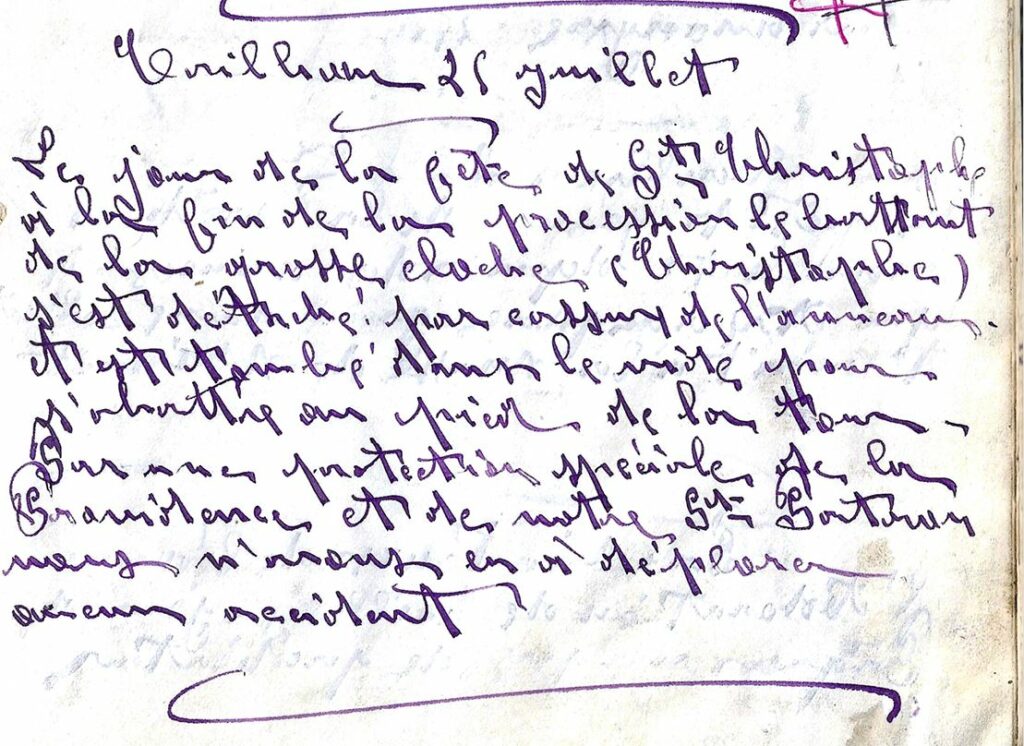 25 juillet
Le jour de la fête de St Christophe
à la fin de la procession le battant
de la grosse cloche (Christophe)
s'est détaché par cassure de l'anneau.
et est tombé dans le vide pour
s'abattre au pied de la tour.
Par une protection spéciale de la
Providence et de notre St Patron
nous n'avons eu à déplorer
aucun accident